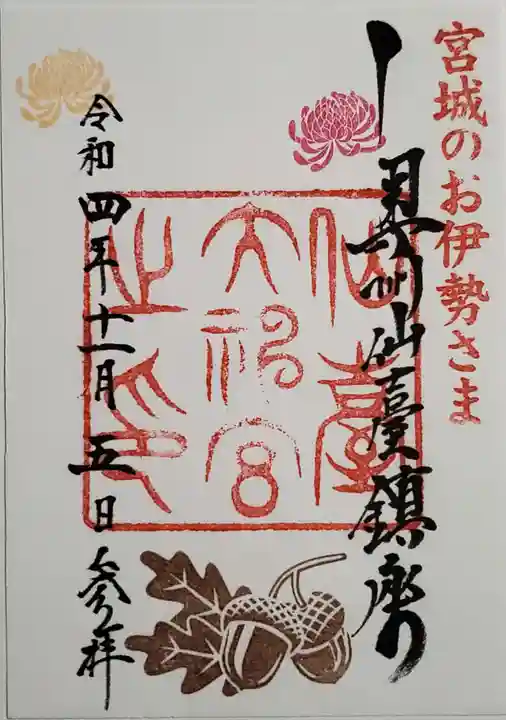 宮城のお伊勢さま
奥州仙臺鎮座
仙臺
大神宮
之印
令和四年十一月五日参拝